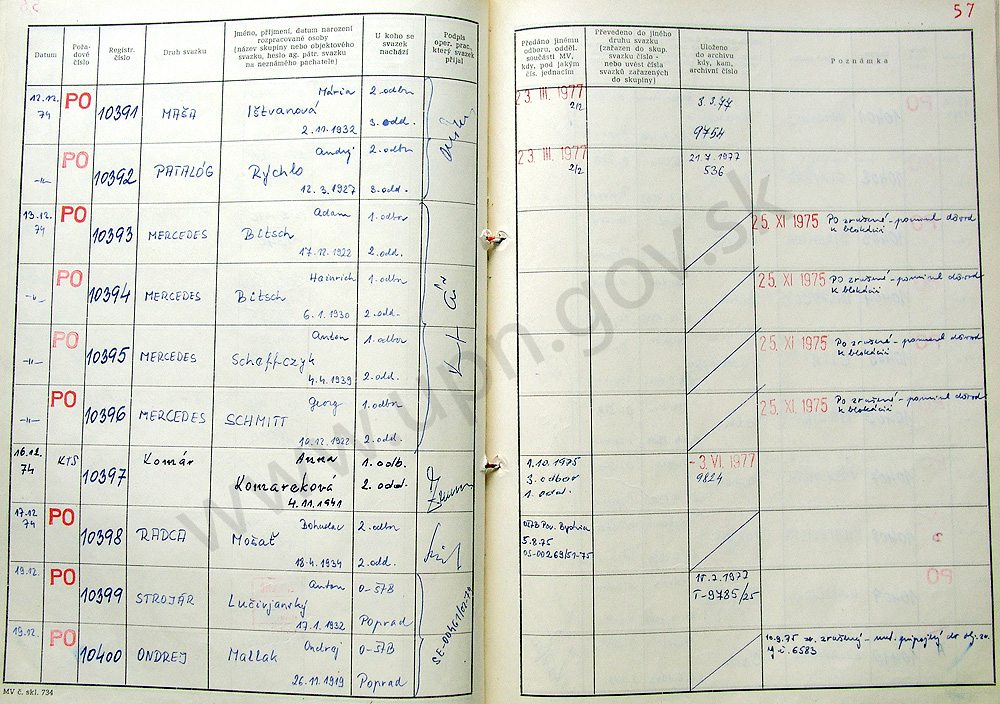 57
Datum
Pořadové číslo
Registr. číslo
Druh svazku
Jméno, příjmení, datum narození rozpracované osoby (název skupiny nebo objektového svazku, heslo ag. pátr. svazku na neznámého pachatele)
U koho se svazek nachází
Podpis oper. prac., který svazek přijal
Předáno jinému odboru, odděl. součásti MV, kdy, pod jakým čís. jednacím
Převedeno do jiného druhu svazku (zařazen do skup. svazku číslo - nebo uvést čísla svazků zařazených do skupiny)
Uloženo do archivu kdy, kam, archivní číslo
Poznámka
12.12. 74 PO 10391 MAŠA Mária Ištvanová 2.11.1932 2. odbor 3. odd. 23. III. 1977 2/2 3.3.77 9754
-"- PO 10392 PATALÓG Andrej Rychlo 12.3.1927 2. odbor 3. odd. 23 III. 1977 2/2 21.7.1977 536
13.12. 74 PO 10393 MERCEDES Adam Bitsch 17.12.1922 1. odbor 2. odd. 25. XI 1975 PO zrušené - pominul dôvod k blokácii
-"- PO 10394 MERCEDES Heinrich Bitsch 6.1.1930 1. odbor 2. odd. 25. XI 1975 PO zrušené - pominul dôvod k blokácii
-"- PO 10395 MERCEDES Anton Scheffczyk 4.4.1939 1. odbor 2. odd. 25. XI 1975 PO zrušené - pominul dôvod k blokácii
-"- PO 10396 MERCEDES Georg SCHMITT 10.12.1922 1. odbor 2. odd. 25. XI 1975 PO zrušené - pominul dôvod k blokácii
16.12. 74 KTS 10397 Komár Anna Komareková 4.11.1941 1. odb. 2. odd. 1.10.1975 3. odbor 1. odd. - 3. VI. 1977 9824
17.12. 74 PO 10398 RADCA Bohuslav Mošať 18.4.1934 2. odbor 2. odd. Pov. Bystrica 5.8.75 OS-00269/51-75
19.12. PO 10399 STROJÁR Anton Lučivjanský 17.1.1932 O-ŠTB Poprad 15.2.1977 T-9785/25
19.12. PO 10400 ONDREJ Ondrej Mallak 26.11.1919 O-ŠTB Poprad 10.9.75 zv. zrušený
č. 6583
MV č. skl. 734
www.upn.gov.sk